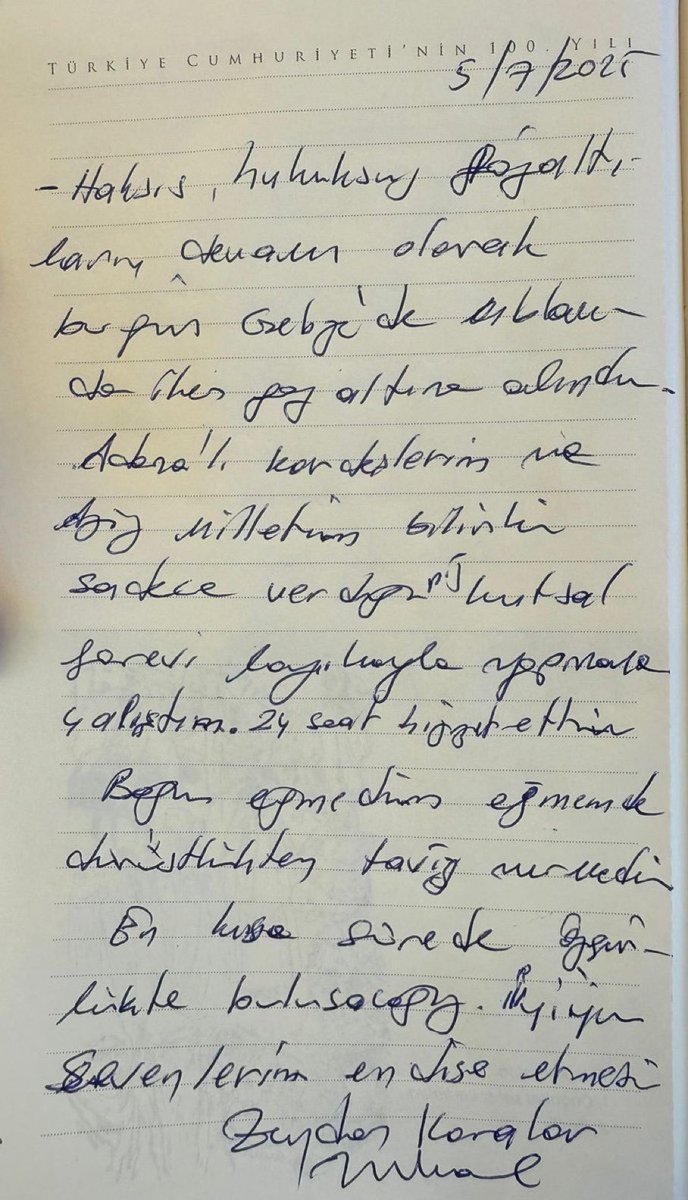 TÜRKİYE CUMHURİYETİ'NİN 100. YILI
5/7/2025
- Haksız, hukuksuz gözaltı-
ların devamı olarak
bugün Gebze'de
da gözaltına alındım.
Adana'lı kardeşlerim ve
aziz milletim bilsin ki
sadece verdiğiniz kutsal
görevi layıkıyla yapmaya
çalıştım. 24 saat hizmet ettim
Boğun eğmedim eğmemde
dürüstlükten taviz vermedim
En kısa sürede özgür-
lükte bulusacağız. İyiyim
Sevenlerim endise etmesin
Zeydan Karalar